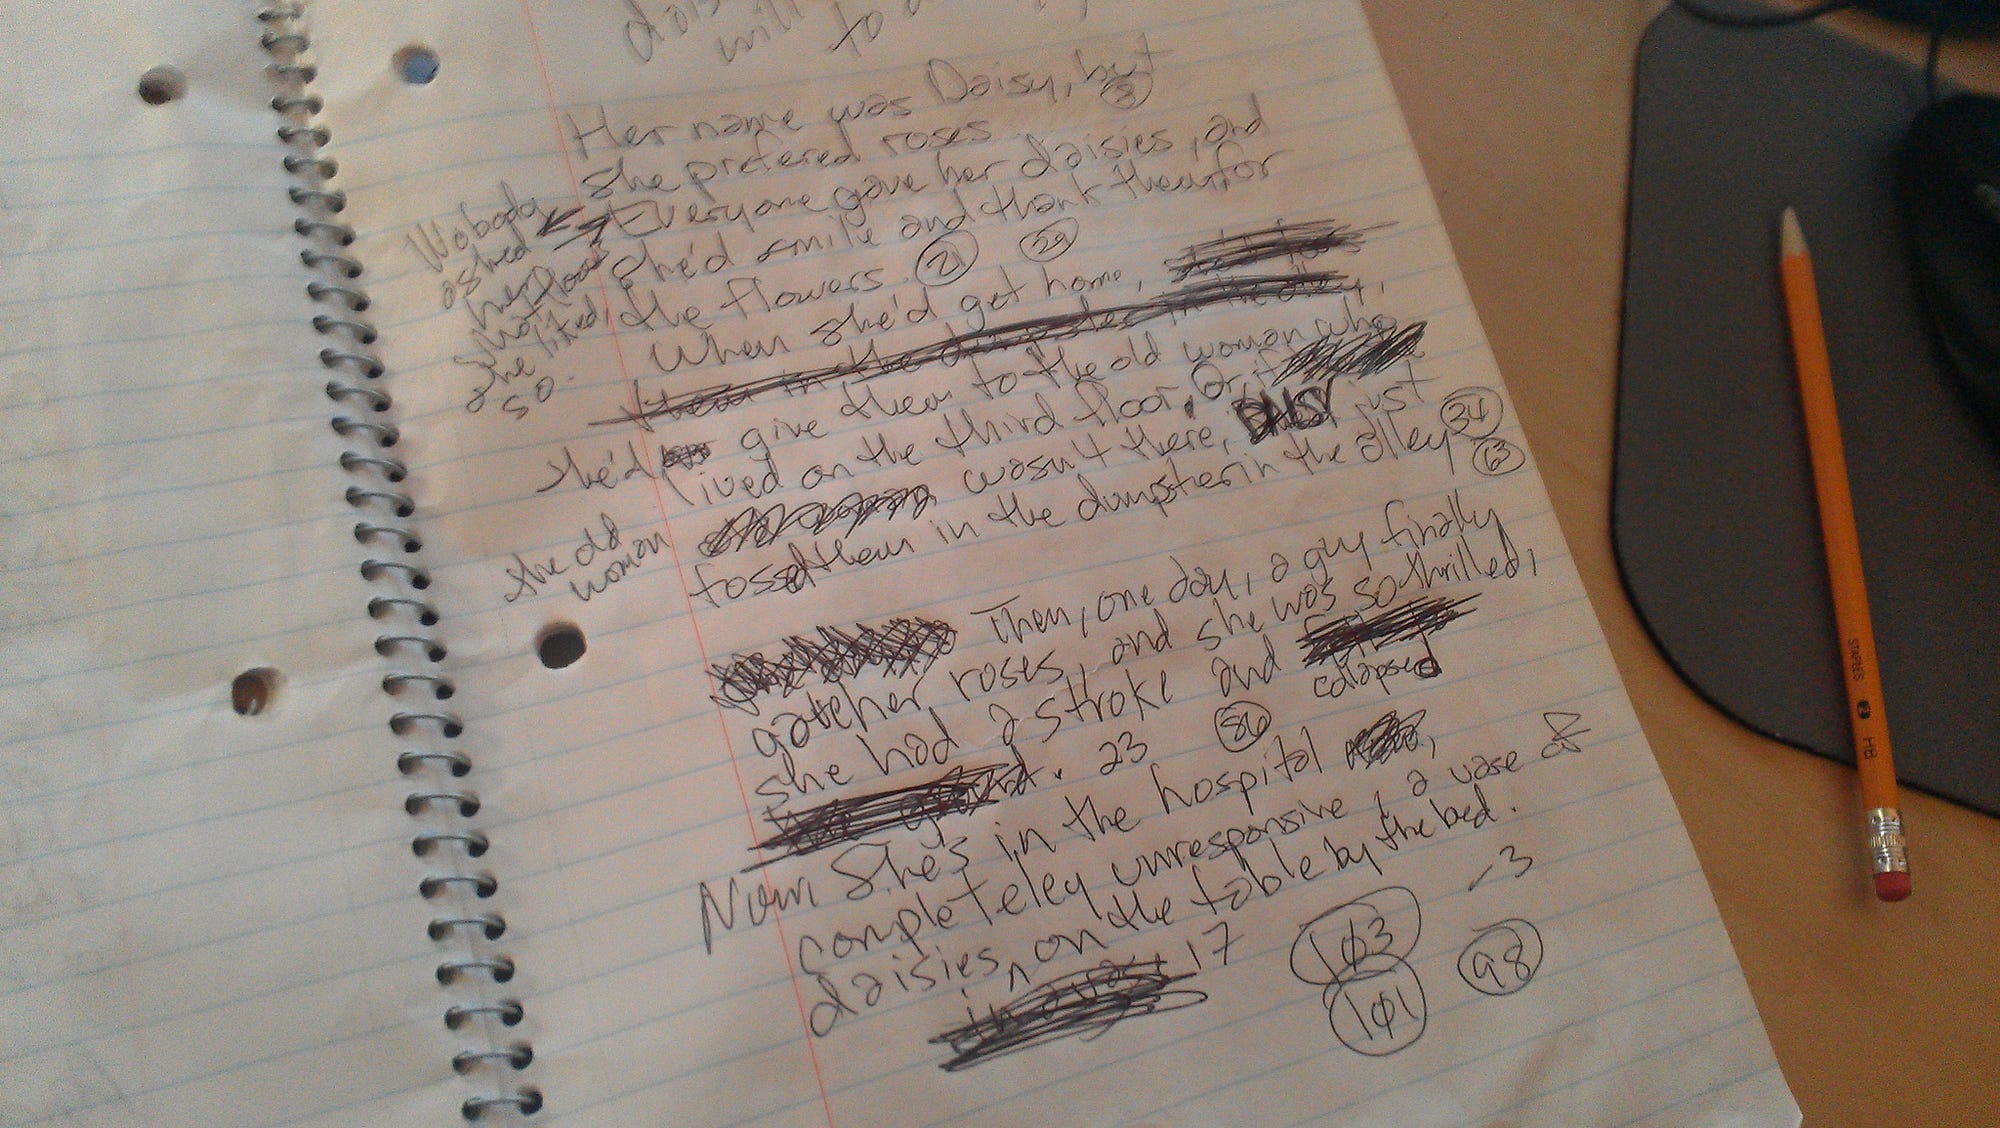 dais
will
to
Her name was Daisy, but
8
she prefered roses
Everyone gave her daisies, and
she'd smile and thank them for
the flowers. 21 29
Nobody
asked
her
what
she liked,
so.
When she'd get home,
them in the dumpster in the alley,
she'd give them to the old woman who
lived on the third floor. Or, if
the old
woman
wasn't there, DAISY just
tossed them in the dumpster in the alley 34
63
Then, one day, a guy finally
gave her roses, and she was so thrilled,
she had a stroke and
collapsed
the ground. 23 86
Now She's in the hospital,
completeley unresponsive, a vase of
daisies, on the table by the bed.
in a vase. 17 103 -3
101 98
STAPLES 2 HB